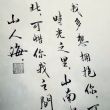 我多想拥抱你
時光之里山南
北可惜你我之间
山人海